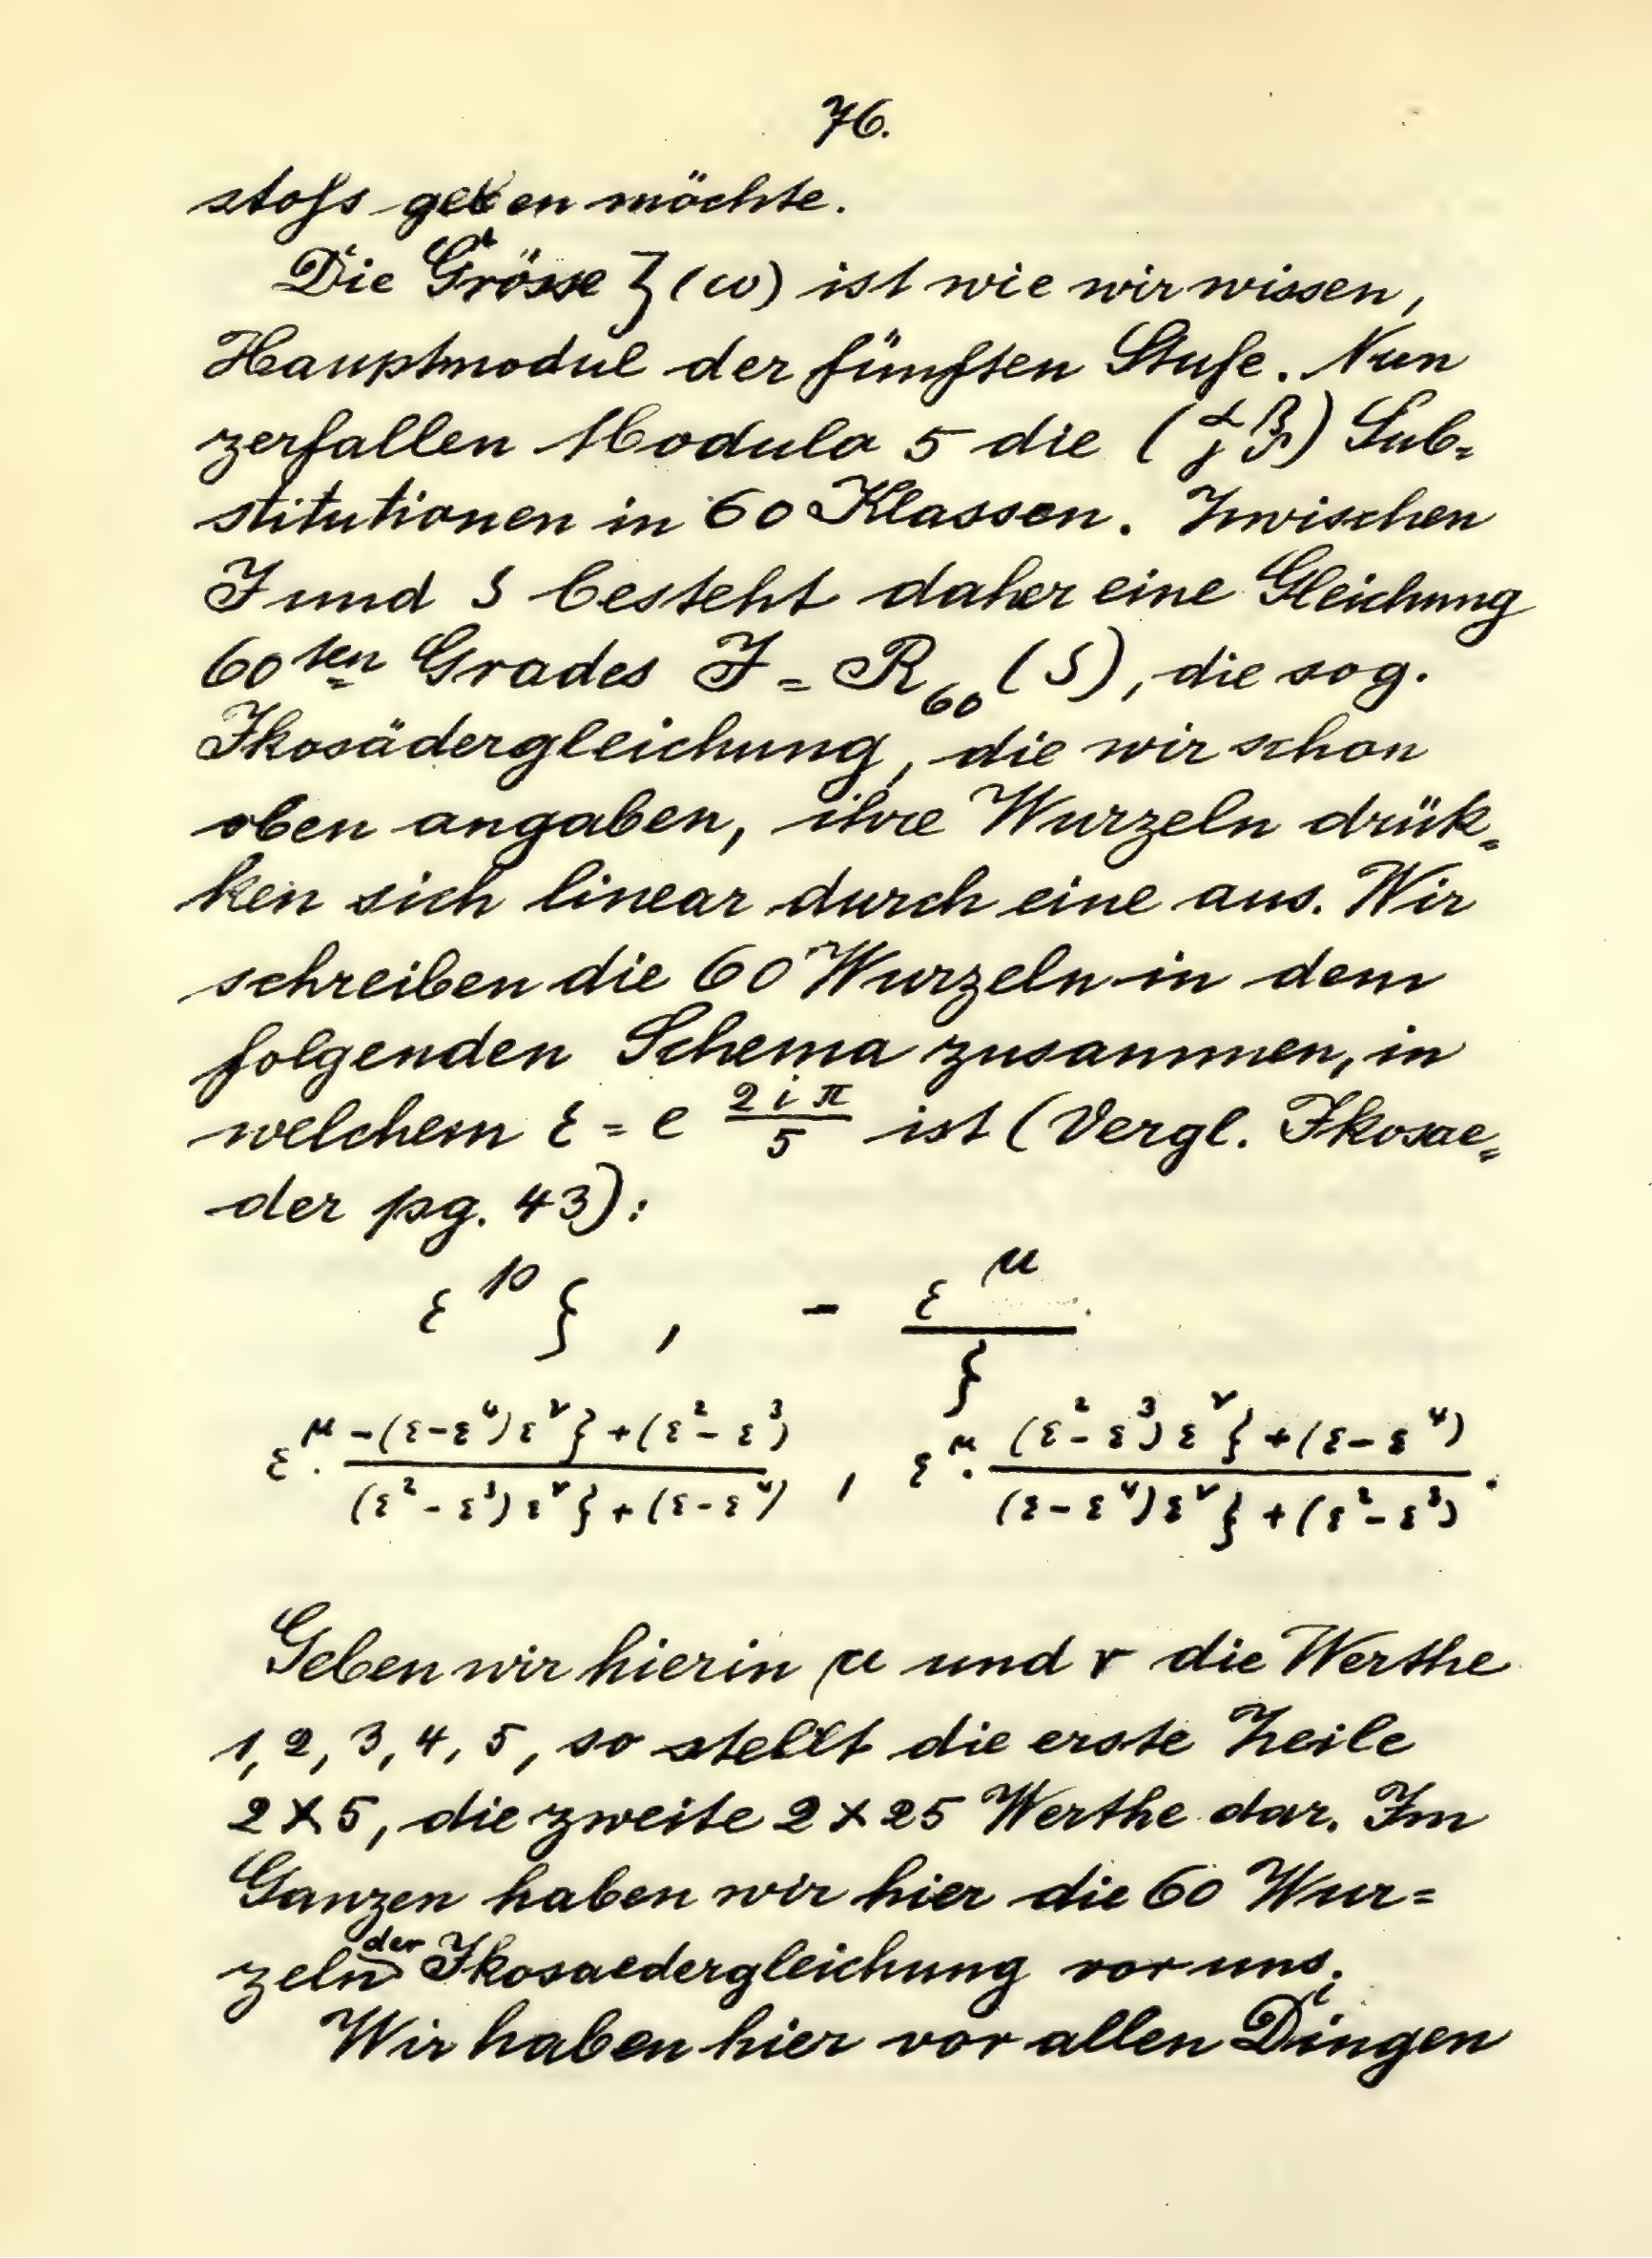 76.
stoſs geben möchte.
Die Grösse ζ(ω) ist wie wir wissen,
Hauptmodul der fünften Stufe. Nun
zerfallen Modulo 5 die (α β γ δ) Sub=
stitutionen in 60 Klassen. Zwischen
J und ζ besteht daher eine Gleichung
60ten Grades J = R₆₀(ζ), die sog.
Ikosädergleichung, die wir schon
oben angaben, ihre Wurzeln drük=
ken sich linear durch eine aus. Wir
schreiben die 60 Wurzeln in dem
folgenden Schema zusammen, in
welchem ε = e^(2iπ/5) ist (Vergl. Ikosae=
der pg. 43):
ε^μ ζ , - ε^μ/ζ
ε^μ · (-(ε-ε⁴)ε^ν ζ + (ε²-ε³))/((ε²-ε³)ε^ν ζ + (ε-ε⁴)) , ε^μ · ((ε²-ε³)ε^ν ζ + (ε-ε⁴))/((ε-ε⁴)ε^ν ζ + (ε²-ε³)) .
Geben wir hierin μ und ν die Werthe
1, 2, 3, 4, 5, so stellt die erste Zeile
2 × 5, die zweite 2 × 25 Werthe dar. Im
Ganzen haben wir hier die 60 Wur=
zeln der Ikosaedergleichung vor uns.
Wir haben hier vor allen Dingen